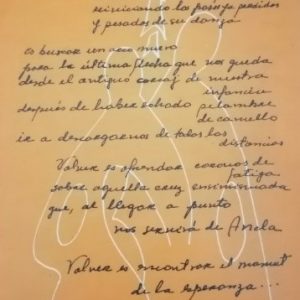 reiniciando los pasos perdidos
y pesados de su danza
es buscar un arco nuevo
para la última flecha que nos queda
desde el antiguo carcaj de nuestra
infancia
después de haber sobado pelambre
de camello
ir a descargarnos de todas las
distancias
Volver es ofrendar coronas de
fatiga
sobre aquella cruz ensimismada
que, al llegar a punto
nos servirá de Ancla
Volver es encontrar el manuel
de la esperanza...